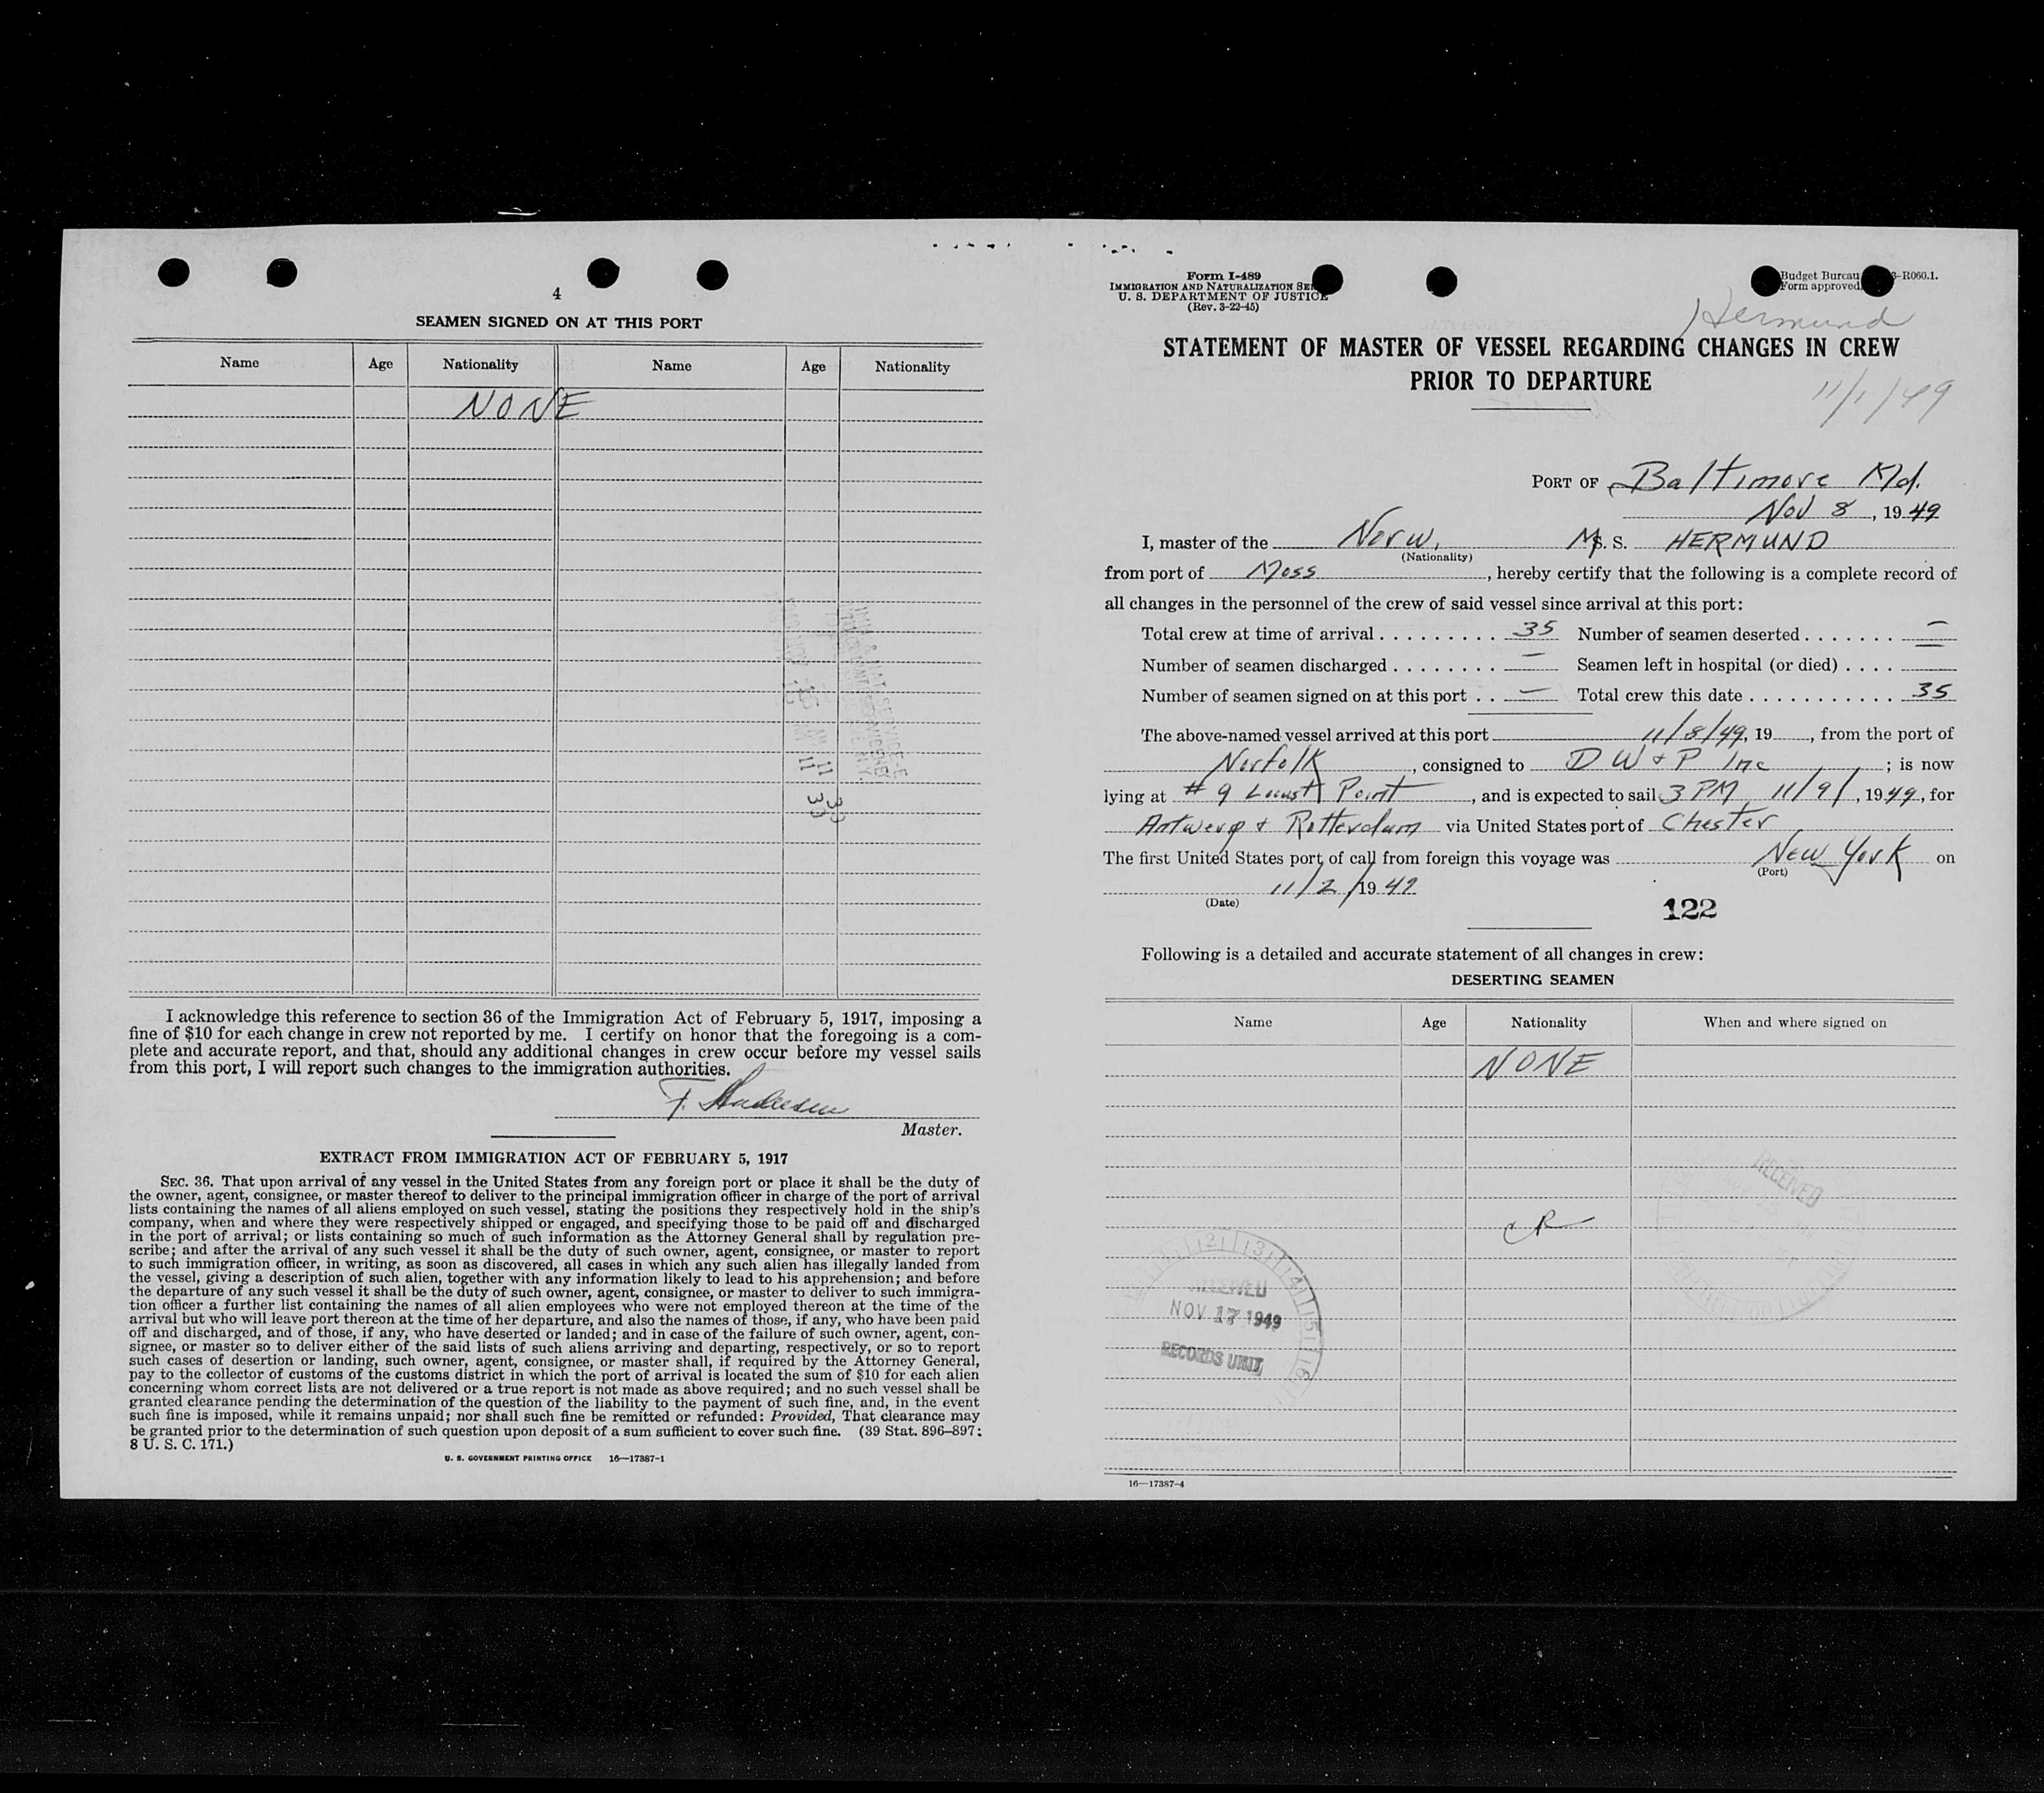 4
SEAMEN SIGNED ON AT THIS PORT
Name Age Nationality Name Age Nationality
NONE
I acknowledge this reference to section 36 of the Immigration Act of February 5, 1917, imposing a
fine of $10 for each change in crew not reported by me. I certify on honor that the foregoing is a com-
plete and accurate report, and that, should any additional changes in crew occur before my vessel sails
from this port, I will report such changes to the immigration authorities.
Master.
EXTRACT FROM IMMIGRATION ACT OF FEBRUARY 5, 1917
SEC. 36. That upon arrival of any vessel in the United States from any foreign port or place it shall be the duty of
the owner, agent, consignee, or master thereof to deliver to the principal immigration officer in charge of the port of arrival
lists containing the names of all aliens employed on such vessel, stating the positions they respectively hold in the ship's
company, when and where they were respectively shipped or engaged, and specifying those to be paid off and discharged
in the port of arrival; or lists containing so much of such information as the Attorney General shall by regulation pre-
scribe; and after the arrival of any such vessel it shall be the duty of such owner, agent, consignee, or master to report
to such immigration officer, in writing, as soon as discovered, all cases in which any such alien has illegally landed from
the vessel, giving a description of such alien, together with any information likely to lead to his apprehension; and before
the departure of any such vessel it shall be the duty of such owner, agent, consignee, or master to deliver to such immigra-
tion officer a further list containing the names of all alien employees who were not employed thereon at the time of the
arrival but who will leave port thereon at the time of her departure, and also the names of those, if any, who have been paid
off and discharged, and of those, if any, who have deserted or landed; and in case of the failure of such owner, agent, con-
signee, or master so to deliver either of the said lists of such aliens arriving and departing, respectively, or so to report
such cases of desertion or landing, such owner, agent, consignee, or master shall, if required by the Attorney General,
pay to the collector of customs of the customs district in which the port of arrival is located the sum of $10 for each alien
concerning whom correct lists are not delivered or a true report is not made as above required; and no such vessel shall be
granted clearance pending the determination of the question of the liability to the payment of such fine, and, in the event
such fine is imposed, while it remains unpaid; nor shall such fine be remitted or refunded: Provided, That clearance may
be granted prior to the determination of such question upon deposit of a sum sufficient to cover such fine. (39 Stat. 896–897;
8 U. S. C. 171.)
U. S. GOVERNMENT PRINTING OFFICE 16—17387-1
Form I-489
IMMIGRATION AND NATURALIZATION SE
U. S. DEPARTMENT OF JUSTICE
(Rev. 3-22-45)
Budget Bureau 3-R060.1.
Form approved.
Hermund
STATEMENT OF MASTER OF VESSEL REGARDING CHANGES IN CREW
PRIOR TO DEPARTURE
11/1/49
PORT OF Baltimore Md.
Nov 8, 1949
I, master of the Norw. M. S. HERMUND
(Nationality)
from port of Moss, hereby certify that the following is a complete record of
all changes in the personnel of the crew of said vessel since arrival at this port:
Total crew at time of arrival . . . . . . . . . 35 Number of seamen deserted . . . . . . . —
Number of seamen discharged . . . . . . . . — Seamen left in hospital (or died) . . . . —
Number of seamen signed on at this port . . — Total crew this date . . . . . . . . . . . . 35
The above-named vessel arrived at this port 11/8/49, 19 , from the port of
Norfolk, consigned to D W & P Inc ; is now
lying at # 9 Locust Point, and is expected to sail 3 PM 11/9/, 1949, for
Antwerp & Rotterdam via United States port of Chester
The first United States port of call from foreign this voyage was New York on
(Port)
11/2/1949
(Date)
122
Following is a detailed and accurate statement of all changes in crew:
DESERTING SEAMEN
Name Age Nationality When and where signed on
NONE
RECEIVED
RECEIVED
NOV 17 1949
RECORDS UNIT
16—17387-4